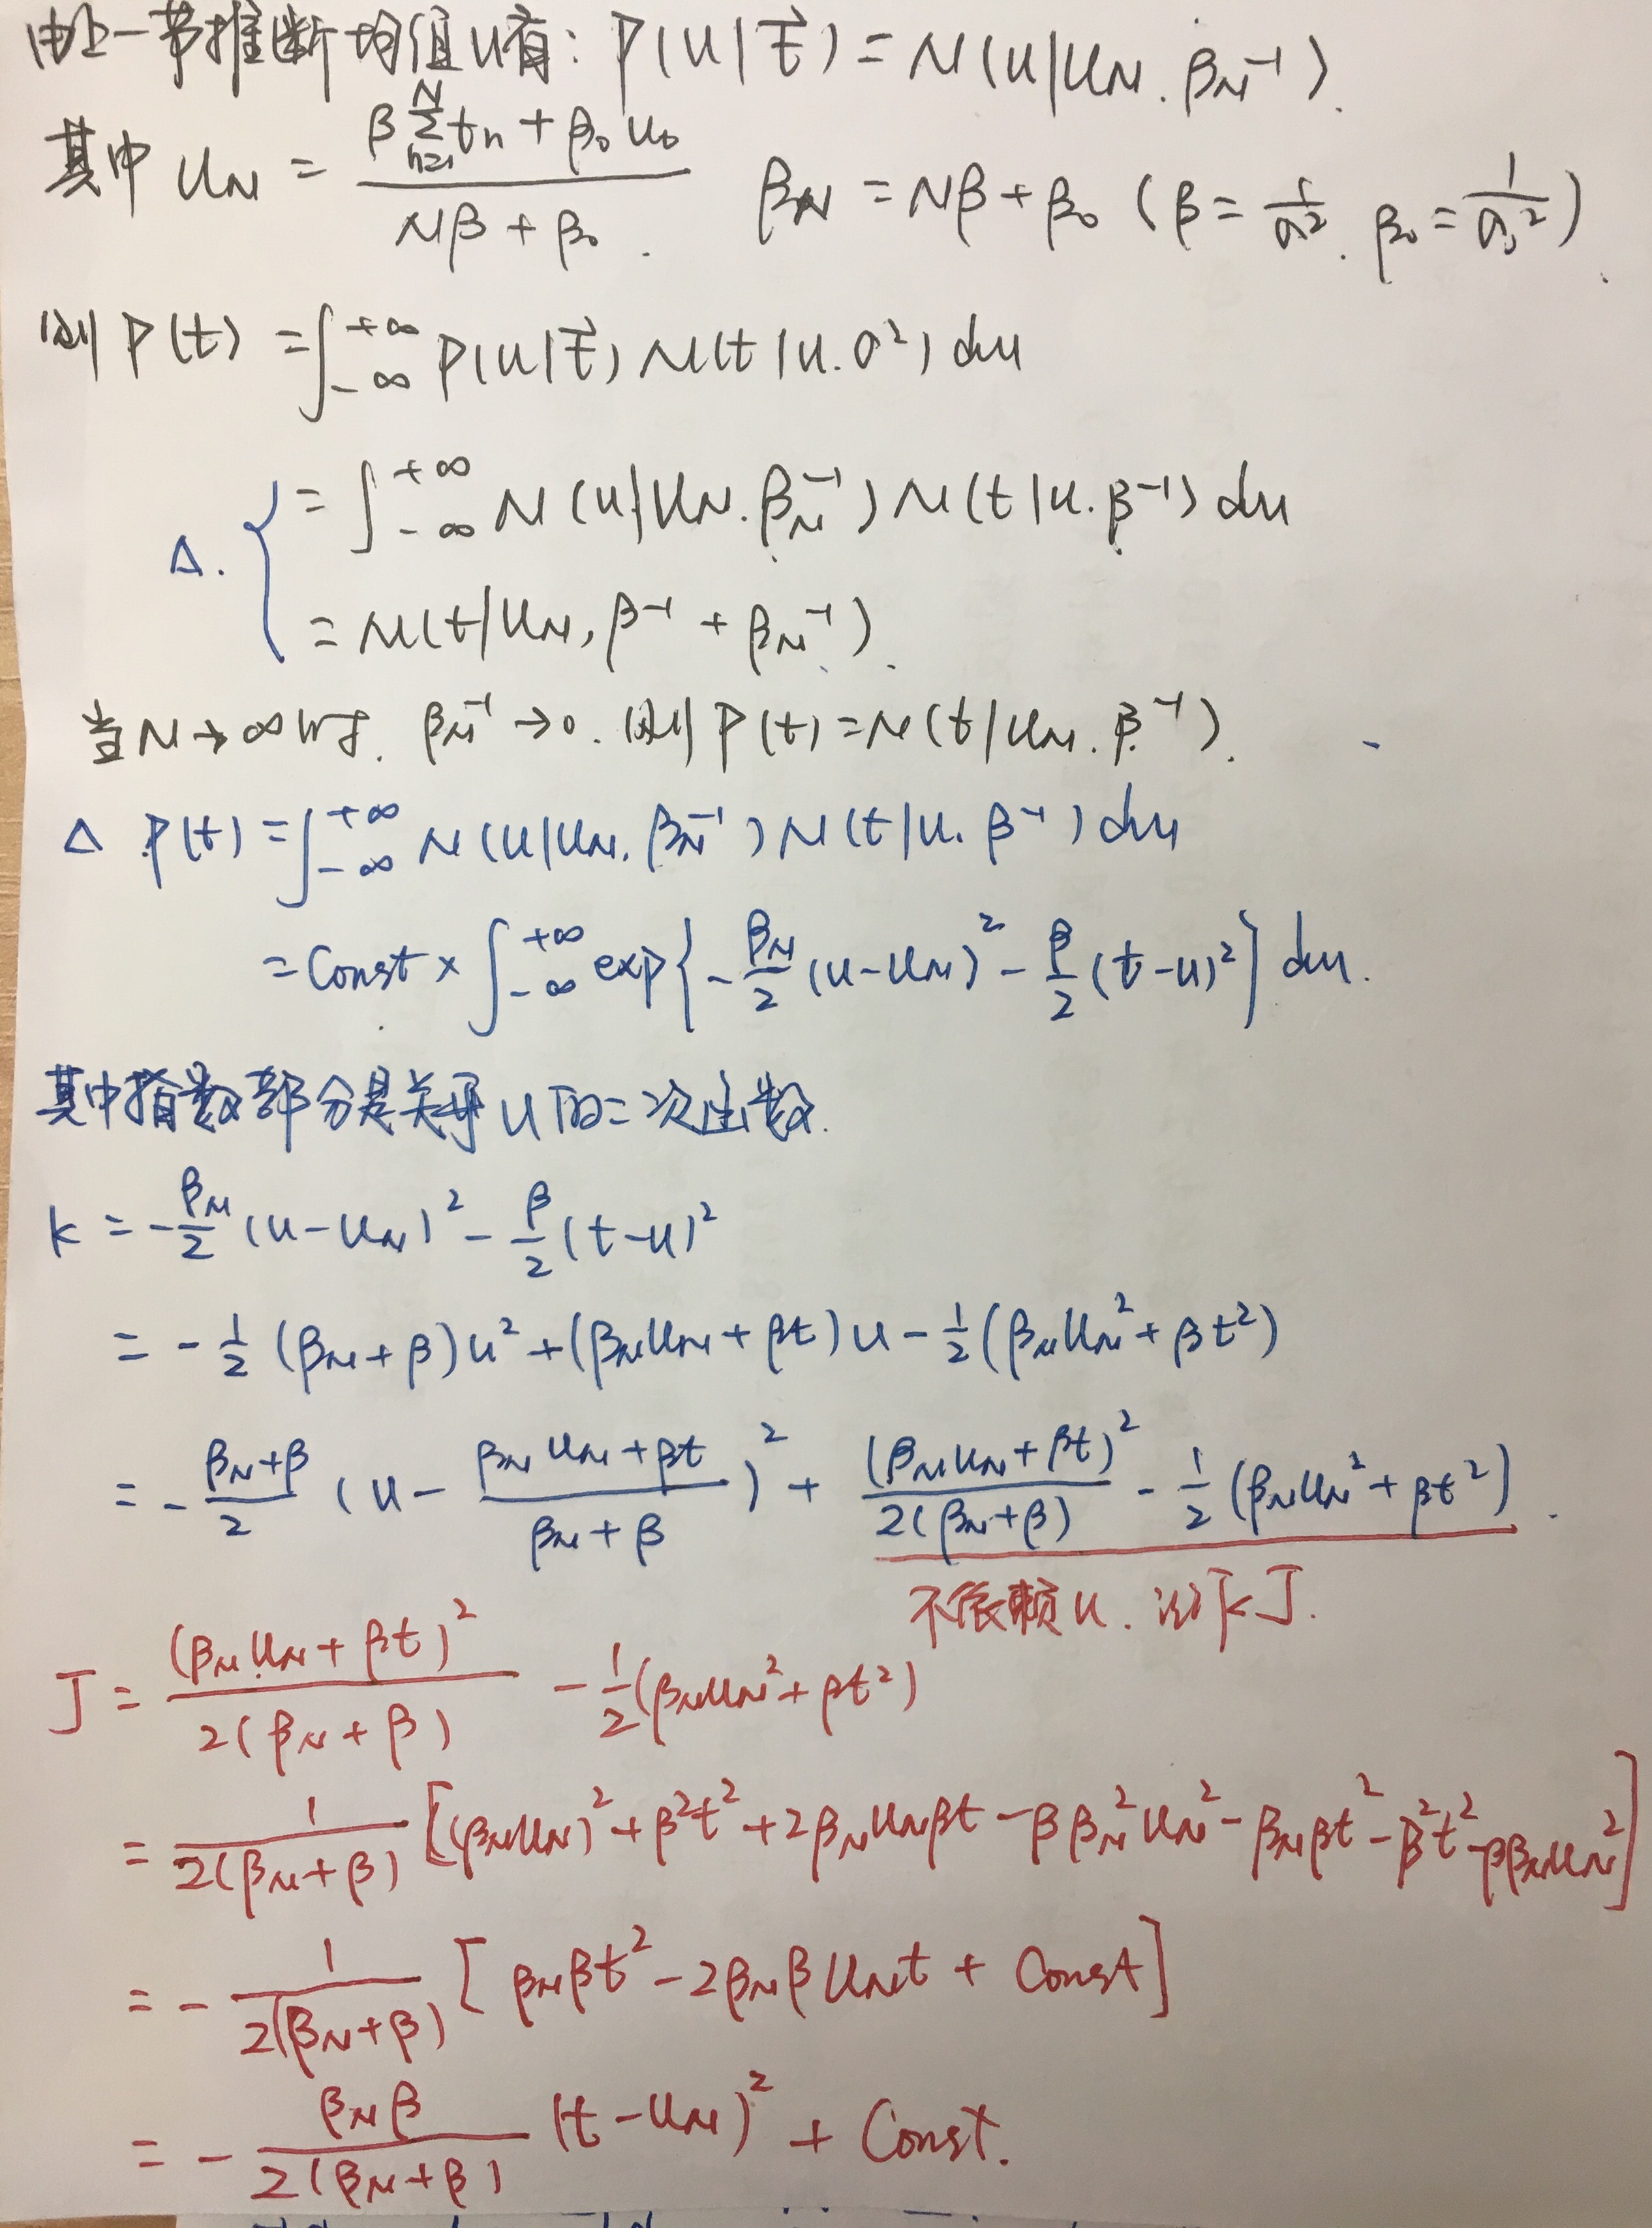 由上一节推断均值u有: P(u|t⃗) = N(u|u_N, β_N⁻¹).
其中 u_N = (β Σ_{n=1}^{N} t_n + β₀u₀) / (Nβ + β₀). β_N = Nβ + β₀ (β = 1/σ², β₀ = 1/σ₀²).
则 P(t) = ∫_{-∞}^{+∞} P(u|t⃗) N(t|u, σ²) du
Δ. { = ∫_{-∞}^{+∞} N(u|u_N, β_N⁻¹) N(t|u, β⁻¹) du
= N(t|u_N, β⁻¹ + β_N⁻¹).
当N→∞时, β_N⁻¹→0, 则P(t) = N(t|u_N, β⁻¹).
Δ P(t) = ∫_{-∞}^{+∞} N(u|u_N, β_N⁻¹) N(t|u, β⁻¹) du
= Const × ∫_{-∞}^{+∞} exp{ -β_N/2 (u-u_N)² - β/2 (t-u)² } du.
其中指数部分是关于u的二次函数.
k = -β_N/2 (u-u_N)² - β/2 (t-u)²
= -1/2 (β_N+β)u² + (β_N u_N + βt)u - 1/2 (β_N u_N² + βt²)
= -(β_N+β)/2 (u - (β_N u_N + βt)/(β_N+β))² + (β_N u_N + βt)²/(2(β_N+β)) - 1/2 (β_N u_N² + βt²).
不依赖u. 记为J.
J = (β_N u_N + βt)²/(2(β_N+β)) - 1/2 (β_N u_N² + βt²)
= 1/(2(β_N+β)) [(β_N u_N)² + β²t² + 2β_N u_N βt - β β_N² u_N² - β_N βt² - β²t² - ββ_N u_N²]
= -1/(2(β_N+β)) [β_N βt² - 2β_N β u_N t + Const]
= -β_N β/(2(β_N+β)) (t-u_N)² + Const.